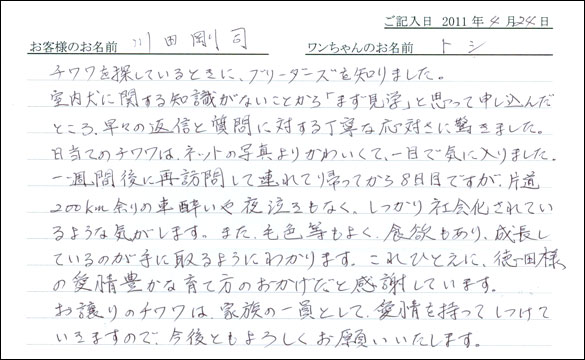 ご記入日 2011年4月24日
お客様のお名前 川田剛司 ワンちゃんのお名前 トシ
チワワを探しているときに、ブリーダーズを知りました。
室内犬に関する知識がないことから「まず見学」と思って申し込んだ
ところ、早々の返信と質問に対する丁寧な応対さに驚きました。
目当てのチワワは、ネットの写真よりかわいくて、一目で気に入りました。
一週間後に再訪問して連れて帰ってから8日目ですが、片道
200km余りの車酔いや夜泣きもなく、しっかり社会化されてい
るような気がします。また、毛色等もよく、食欲もあり、成長し
ているのが手に取るようにわかります。これひとえに、徳田様
の愛情豊かな育て方のおかげだと感謝しています。
お譲りのチワワは、家族の一員として、愛情を持ってしつけて
いきますので、今後ともよろしくお願いいたします。